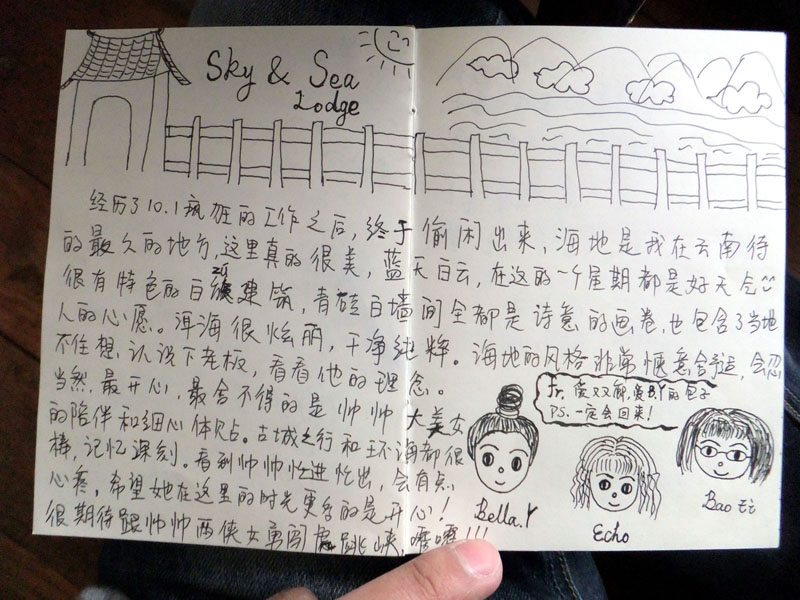 Sky & Sea
Lodge
经历了10.1疯狂的工作之后，终于偷闲出来，海地是我在云南待
的最久的地方，这里真的很美，蓝天白云，在这的一个星期都是好天气
很有特色的白族建筑，青砖白墙间全都是诗意的画卷，也包含了当地
人的心愿。洱海很炫丽，干净纯粹。海地的风格非常惬意舒适，会忍
不住想认识下老板，看看他的理念。
当然，最开心，最舍不得的是帅帅大美女
的陪伴和细心体贴。古城之行和环海都很
棒，记忆深刻。看到帅帅忙进忙出，会有点
心疼，希望她在这里的时光更多的是开心！
很期待跟帅帅两侠女勇闯虎跳峡，嘿嘿!!!
Fr. 爱双廊，爱B.Y的包子
PS. 一定会回来！
Bella.Y
Echo
Bao